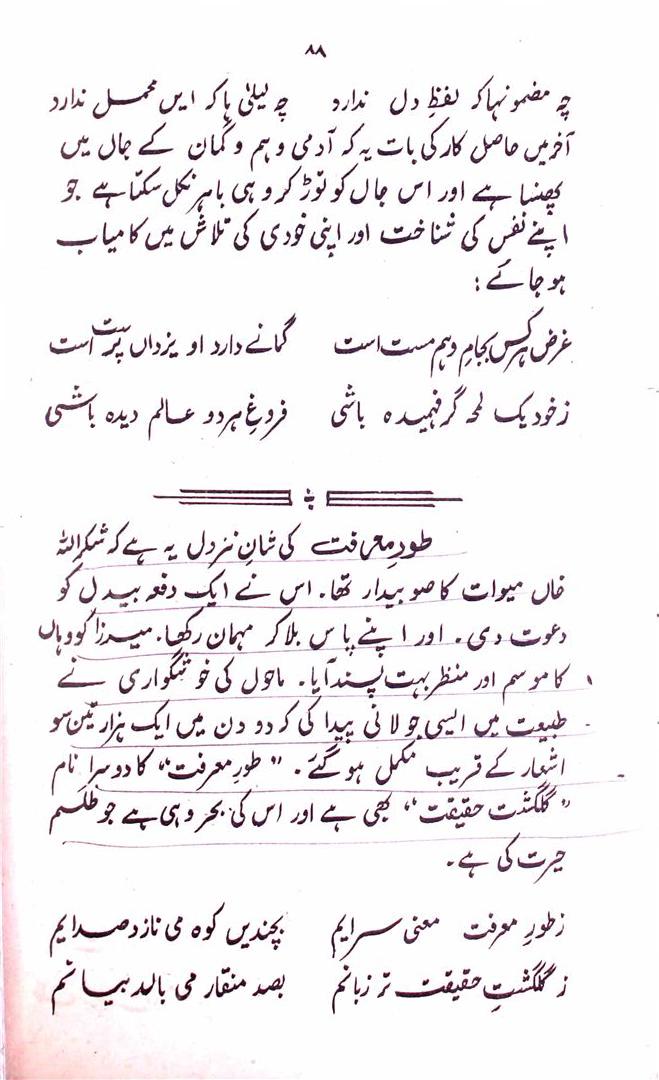 ۸۸
چہ مضمونہا کہ لفظِ دل ندارد چہ لیلیٰ ہا کہ ایں محمل ندارد
آخر میں حاصل کار کی بات یہ کہ آدمی وہم و گمان کے جال میں
پھنسا ہے اور اس جال کو توڑ کر وہی باہر نکل سکتا ہے جو
اپنے نفس کی شناخت اور اپنی خودی کی تلاش میں کامیاب
ہو جائے :
غرض ہرکس بجامِ وہم مست است گمانے دارد او یزداں پرست است
زخود یک لمحہ گر فہمیدہ باشی فروغِ ہر دو عالم دیدہ باشی
طورِ معرفت کی شانِ نزدل یہ ہے کہ شکر اللہ
خاں میوات کا صوبیدار تھا۔ اس نے ایک دفعہ بیدل کو
دعوت دی۔ اور اپنے پاس بلا کر مہمان رکھا۔ میرزا کو وہاں
کا موسم اور منظر بہت پسند آیا۔ ماحول کی خوشگواری نے
طبیعت میں ایسی جولانی پیدا کی کہ دو دن میں ایک ہزار تین سو
اشعار کے قریب مکمل ہو گئے۔ "طورِ معرفت" کا دوسرا نام
"گلگشت حقیقت" بھی ہے اور اس کی بحر وہی ہے جو طلسم
حیرت کی ہے۔
زطورِ معرفت معنی سرایم بچندیں کوہ می نازد صدایم
ز گلگشتِ حقیقت تر زبانم بصد منقار می بالد بیانم